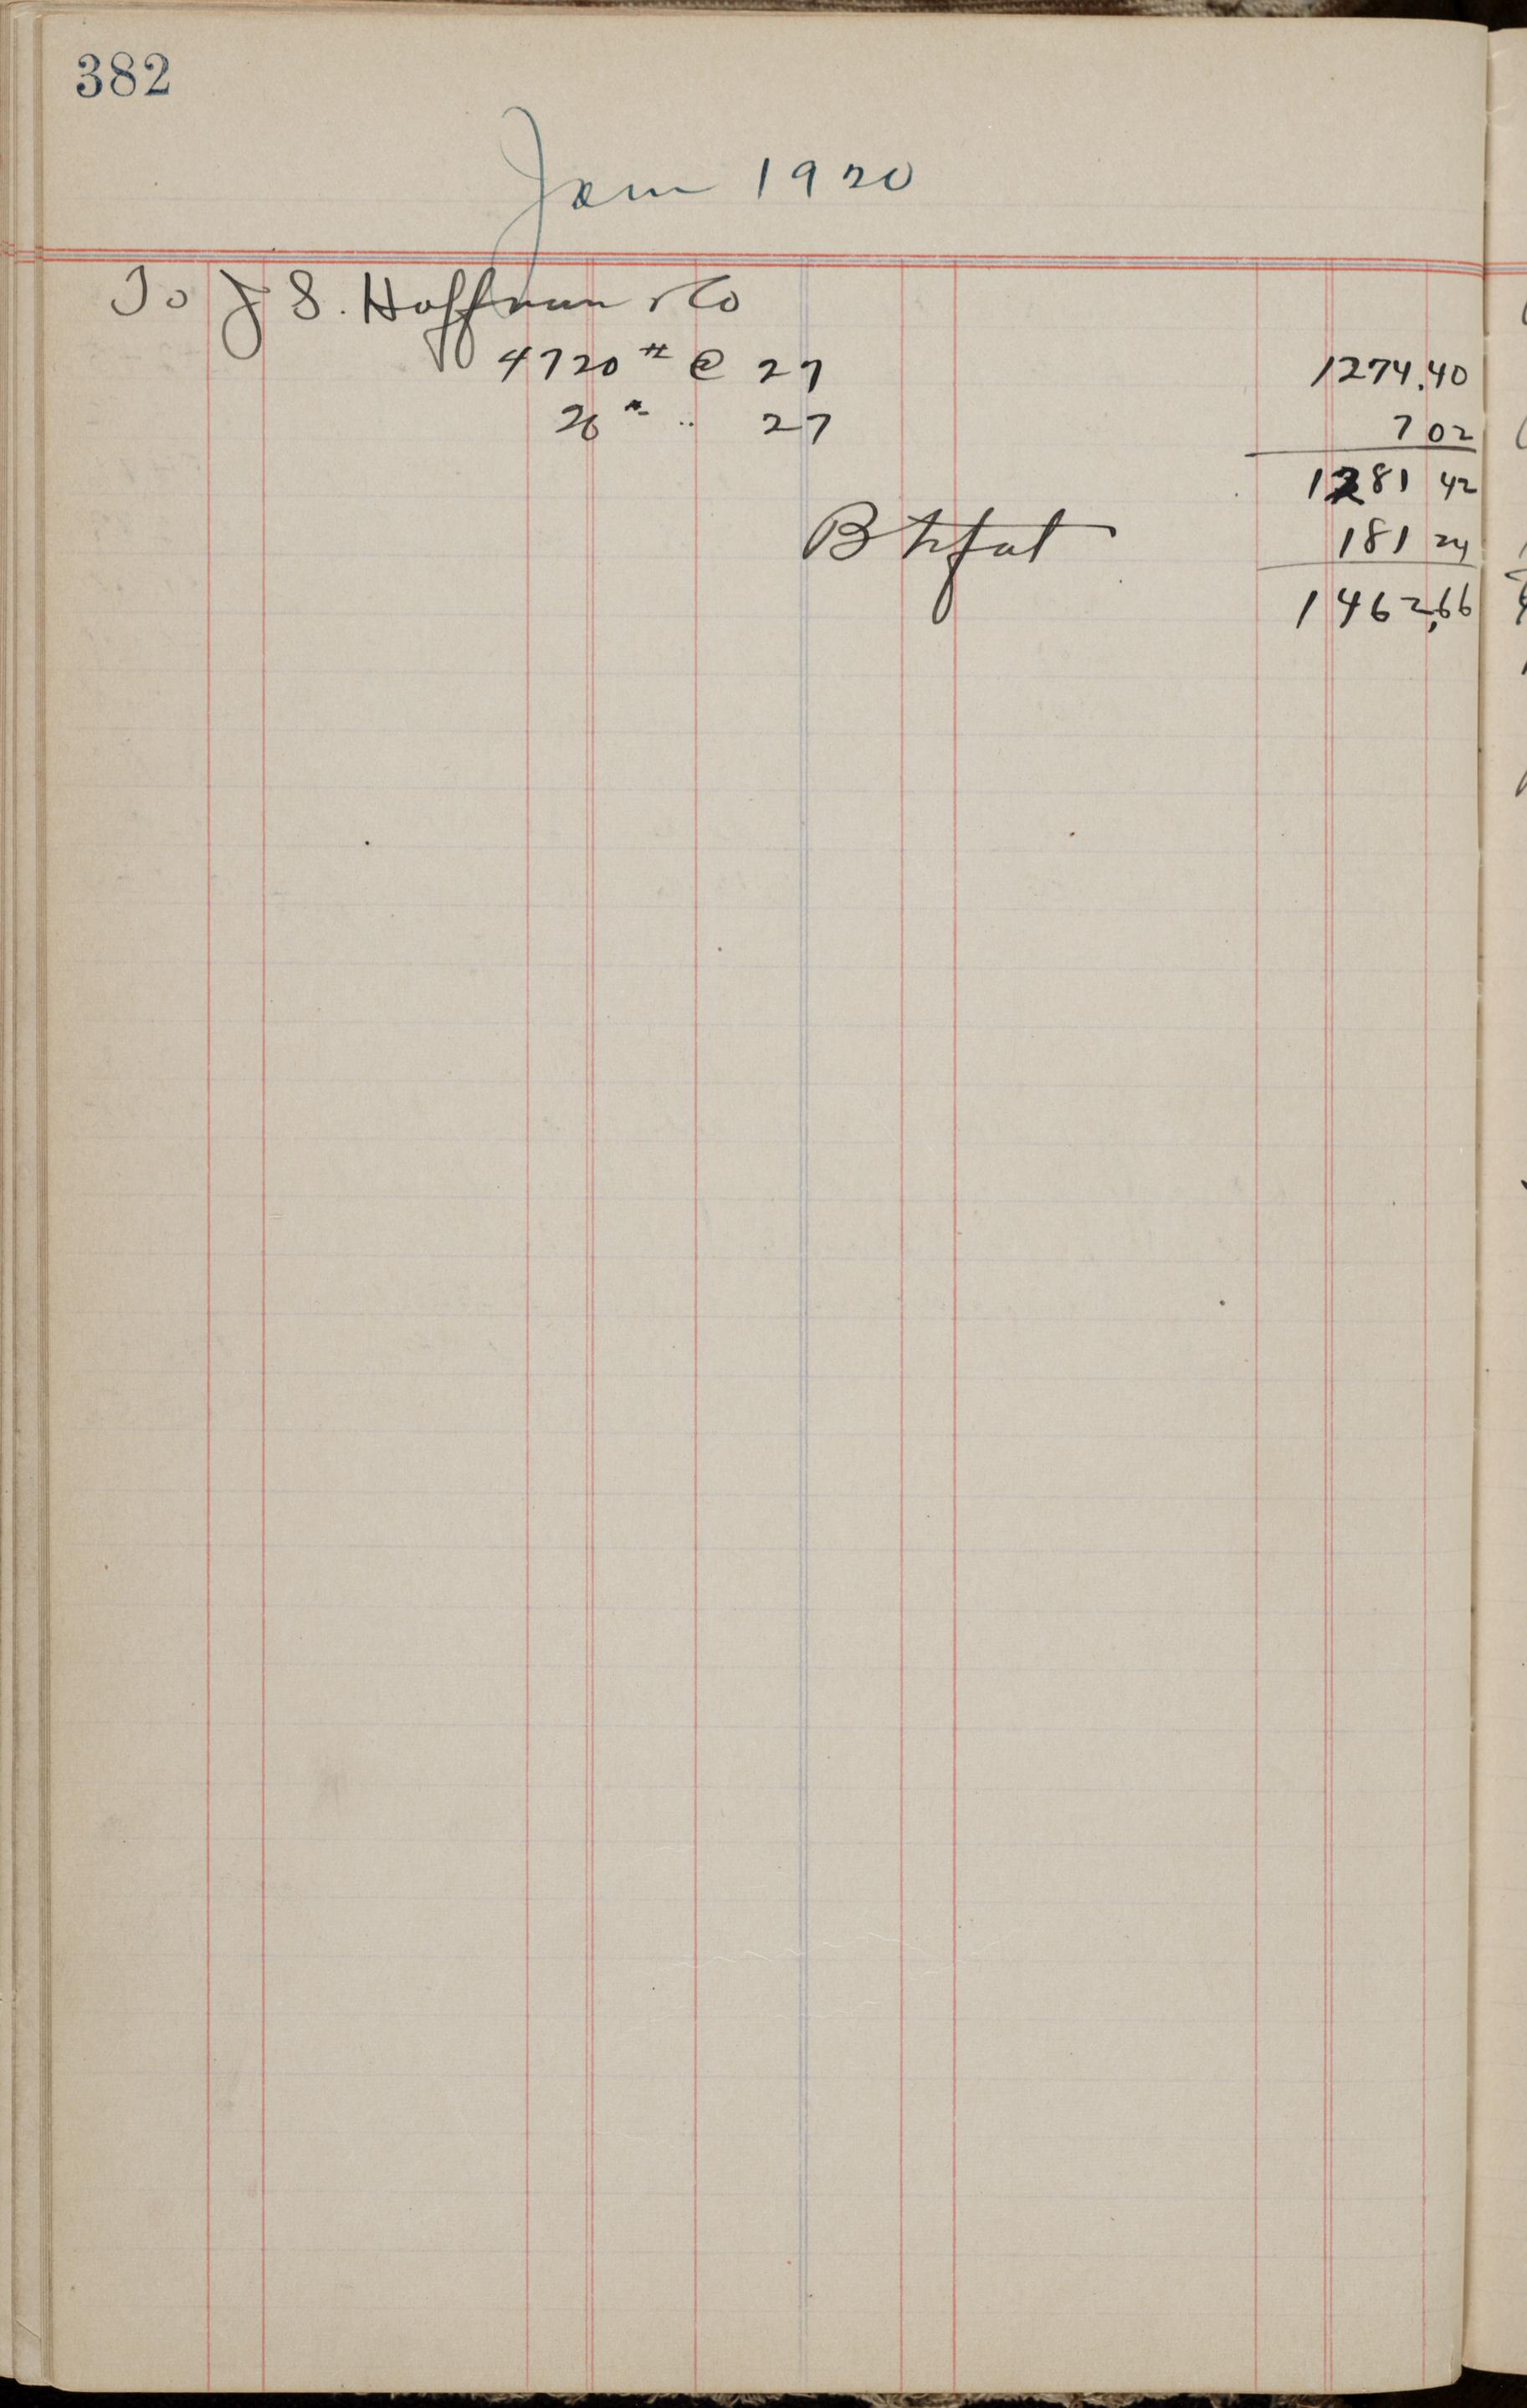 382
Jan 1920
To J S. Hoffman & Co
4720 # @ 27 1274.40
26 # .. 27 7 02
1281 42
B tr fat 181 24
1462.66